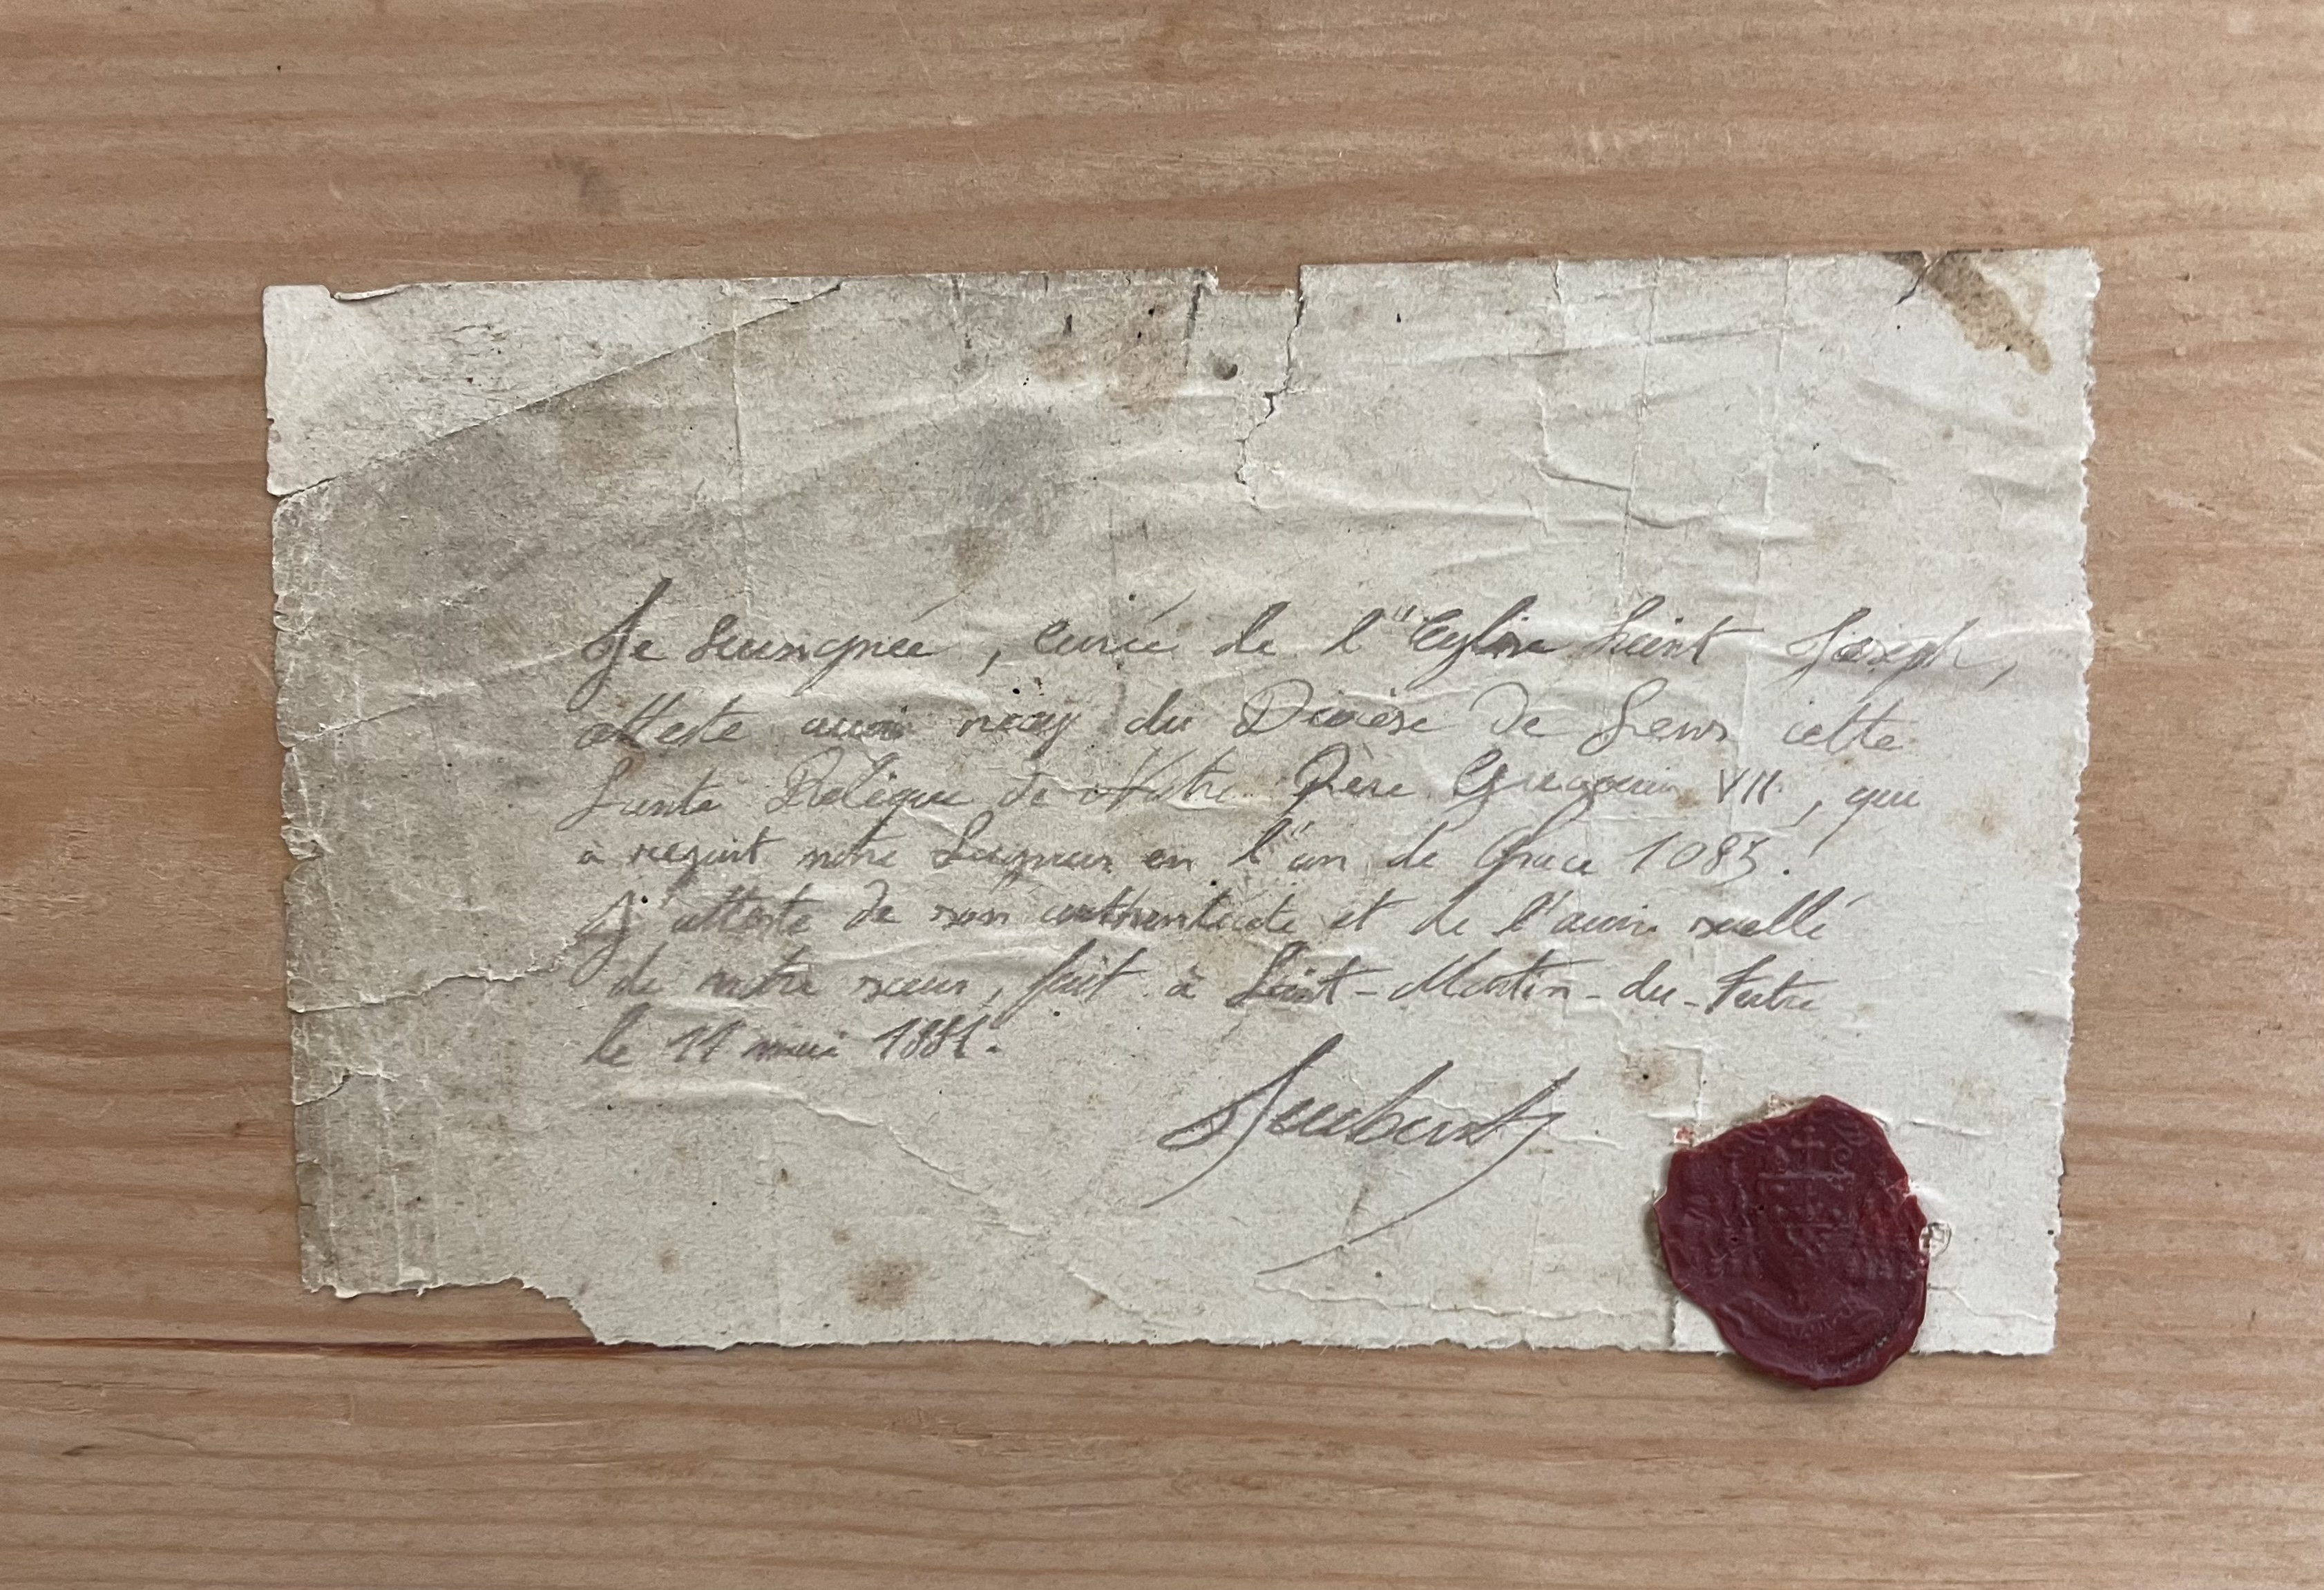 Je sousignée, curée de l'Eglise Saint Joseph,
atteste avoir reçu du Diocèse de Sens cette
Sainte Relique de Notre Père Gregoire VII, qui
à rejoint notre Seigneur en l'an de Grace 1085.
J'atteste de son authenticité et de l'avoir scellé
de notre sceau, fait à Saint-Martin-du-Tertre
le 11 mai 1881.